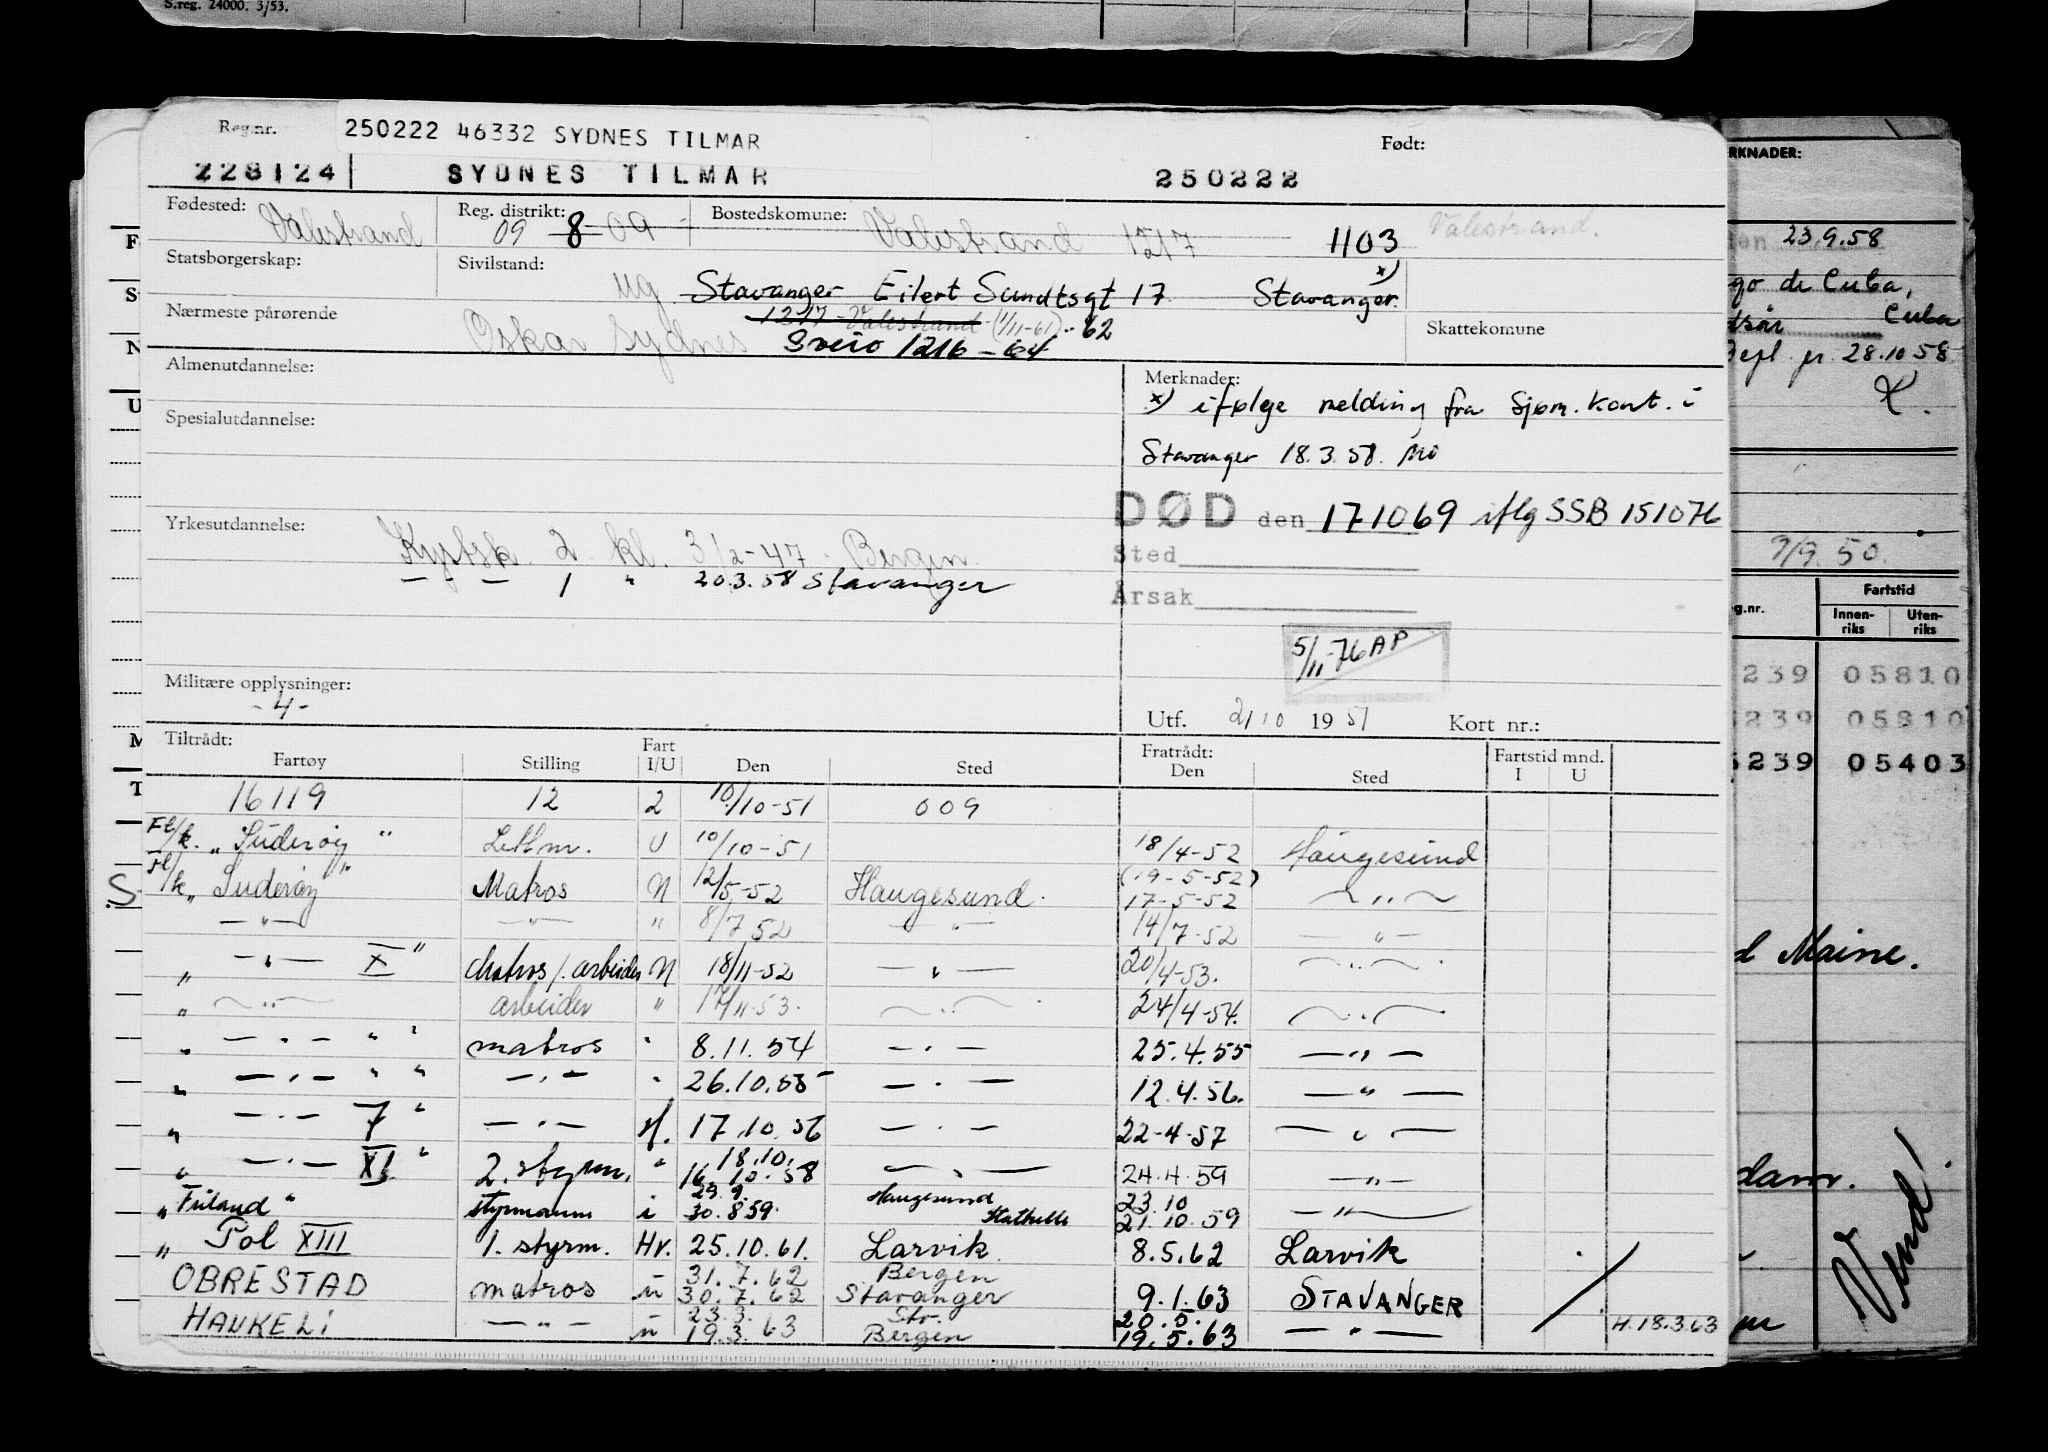 S.reg. 24000. 3/53.
Reg.nr.
250222 46332 SYDNES TILMAR
Født:
228124 SYDNES TILMAR 250222
Fødested: Valestrand
Reg. distrikt: 09 8 09
Bostedskomune: Valestrand 1217 1103 Valestrand.
Statsborgerskap:
Sivilstand: ug
Stavanger Eilert Sundtsgt 17 Stavanger. x)
Nærmeste pårørende Oskar Sydnes
1217 Valestrand (1/11-61) -62
Sveio 1216 - 64
Skattekomune
Almenutdannelse:
Merknader:
x) ifølge melding fra Sjøm. kont. i
Stavanger 18.3.58. Mö
Spesialutdannelse:
DØD den 171069 iflg SSB 151076
Sted
Årsak
Yrkesutdannelse: Kystsk. 2 kl. 3/2-47. Bergen
— - — 1 " 20.3.58 Stavanger
5/11-76 AP
Militære opplysninger:
-4-
Utf. 2/10 1951 Kort nr.:
Tiltrådt:
Fartøy Stilling Fart I/U Den Sted
Fratrådt: Den Sted Fartstid mnd. I U
16119 12 2 10/10-51 009
Fl/k. „Suderøy" Lettm. U 10/10-51 18/4-52 Haugesund
S. Fl/k „Suderøy" Matros N 12/5-52 Haugesund. (19-5-52) 17-5-52 — " —
— " — — " — " 8/7 52 — " — 14/7-52 — " —
„ — " — X " Matros/arbeider N 18/11-52 — " — 20/4-53. — " —
„ — " — arbeider " 17/11-53. — " — 24/4-54. — " —
„ — " — " " matros " 8.11.54 — " — 25.4.55 — " —
„ — " — " " — " — " 26.10.55 — " — 12.4.56. — " —
„ — " — 7 " — " — H. 17.10.56 — " — 22-4-57 — " —
„ — " — XI " 2. styrm. " 18.10. 16.10.58 — " — 24.4.59 — " —
„ Friland " styrmann i 29.9. 30.8 59. Haugesund Stathelle 23.10 21.10.59 — " —
„ Pol XIII 1. styrm. Hv. 25.10.61. Larvik. 8.5.62 Larvik
OBRESTAD matros u 31.7.62 30.7.62 Bergen Stavanger 9.1.63 STAVANGER
HAUKELI — " — u 23.3. 19.3.63 Stv. Bergen 20.5. 19.5.63 — " — H.18.3.63
RKNADER:
23.9.58
go de Cuba,
Cuba
28.10 58
9/9. 50.
g.nr.
Fartstid
Innen-riks
Uten-riks
239 05810
239 05810
5239 05403
d Maine.
dam.
Vend!